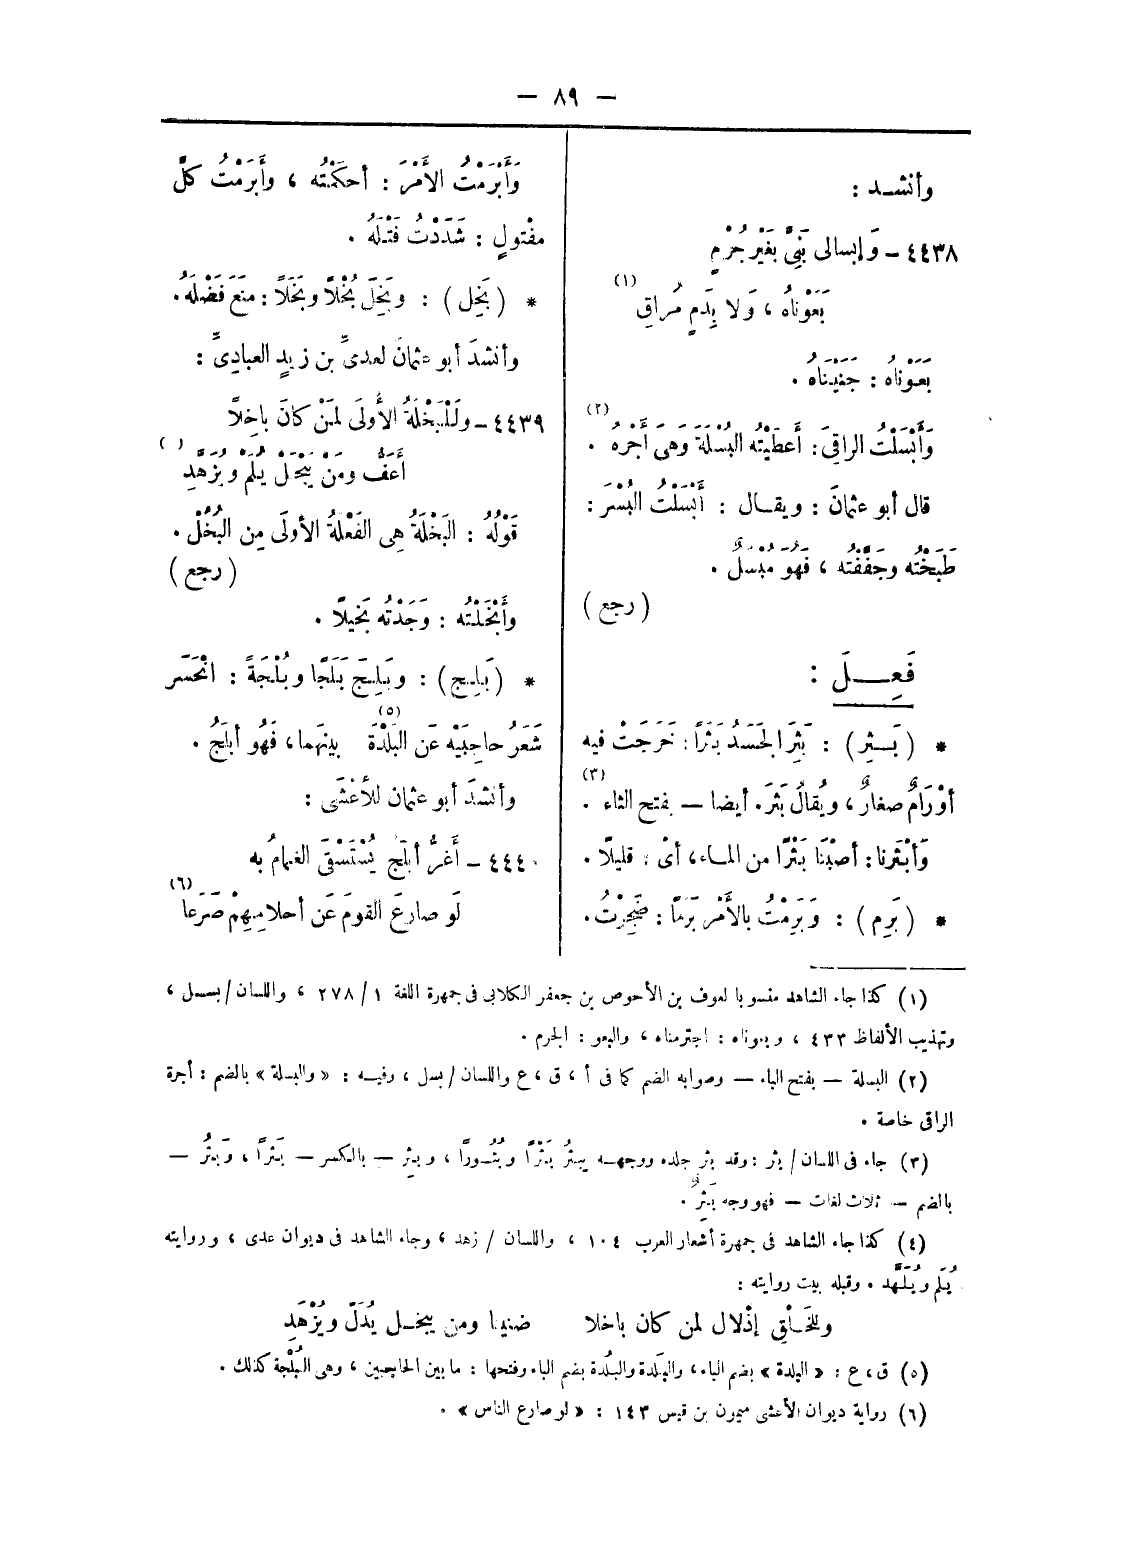 — ٨٩ —
وأنشد :
٤٤٣٨ – وَإبسالى بَنِىَّ بغَيْرِ جُرْمٍ
بَعَوْناهُ ، وَلا بِدَمٍ مُراقِ (١)
بَعَوْناهُ : جَنَيناهُ .
وَأَبْسَلْتُ الراقِىَ : أَعطَيْتُه البُسْلَةَ وَهى أُجْرَهُ (٢) .
قال أبو عثمانَ : ويقال : أَبْسَلْتُ البُسْرَ :
طَبَخْتُه وجَفَّفتُه ، فَهُوَ مُبْسَلٌ .
( رجع )
فَعِلَ :
* ( بَثِر ) : بَثِرَ الجَسَدُ بَثَرًا : خَرَجَتْ فيه
أَوْرَامٌ صغارٌ ، ويُقالُ بَثَرَ . أيضا – بفتح الثاء (٣) .
وَأَبْثَرنا : أصَبْنَا بَثْرًا من الماء ، أىْ : قليلًا .
* ( بَرِم ) : وَبَرِمْتُ بالأَمْرِ بَرَمًا : ضَجِرْتُ .
وَأَبْرَمْتُ الأَمْرَ : أحكَمْتُه ، وأَبرَمتُ كلَّ
مفْتولٍ : شَدَدْتُ فَتلَهُ .
* ( بَخِل ) : وبَخِلَ بُخْلًا وبَخَلًا : منَعَ فَضْلَهُ .
وأنشدَ أبو عثمانَ لعدىِّ بن زيدٍ العبادِىِّ :
٤٤٣٩ – ولَلْبَخْلَةُ الأُولَى لمَنْ كانَ باخِلًا
أَعَفُّ ومَنْ يَبْخَلْ يُلَمْ ويُزَهَّدِ ( )
قَوْلُهُ : البَخْلَةُ هِى الفَعْلَةُ الأولَى مِن البُخْلِ .
( رجع )
وأَبْخَلْتُه : وَجَدْتُه بَخيلًا .
* ( بَلِج ) : وبَلِجَ بَلَجًا وبُلْجَةً : انْحَسَر
شَعَرُ حاجِبَيْه عَن البَلْدَةِ (٥) بينهما ، فَهُو أبلَجُ .
وأنشدَ أبو عثمان للأعْشَى :
٤٤٤٠ – أَغَرُّ أبلَجُ يُسْتَسْقَى الغمامُ به
لَو صارعَ القومَ عَن أحلامِهِمْ صَرَعا (٦)
(١) كذا جاء الشاهد منسوبا لعوف بن الأحوص بن جعفر الكلابى فى جمهرة اللغة ١/ ٢٧٨ ، واللسان/بسل ،
وتهذيب الألفاظ ٤٣٣ ، وبعوناه : اجترمناه ، والبعو : الجرم .
(٢) البسلة – بفتح الباء – وصوابه الضم كما فى أ ، ق ، ع واللسان /بسل ، وفيه : « والبسلة » بالضم : أجرة
الراقى خاصة .
(٣) جاء فى اللسان / بثر : وقد بثر جلده ووجهه يبثُر بَثْرًا وبُثُورًا ، وبثِر – بالكسر – بَثَرًا ، وبَثُر –
بالضم – ثلاث لغات – فهو وجه بَثِرٌ .
(٤) كذا جاء الشاهد فى جمهرة أشعار العرب ١٠٤ ، واللسان / زهد ، وجاء الشاهد فى ديوان عدى ، وروايته
يُلَم ويُلَهَّد . وقبله بيت روايته :
وللخَلْقِ إذْلال لمن كان باخلا ضنينا ومن يبخل يُدَلّ ويُزْهَدِ
(٥) ق ، ع : « البلدة » بضم الباء ، والبَلدة والبُلدة بضم الباء وفتحها : ما بين الحاجبين ، وهى البُلْجة كذلك .
(٦) رواية ديوان الأعشى ميمون بن قيس ١٤٣ : « لو صارع الناس » .